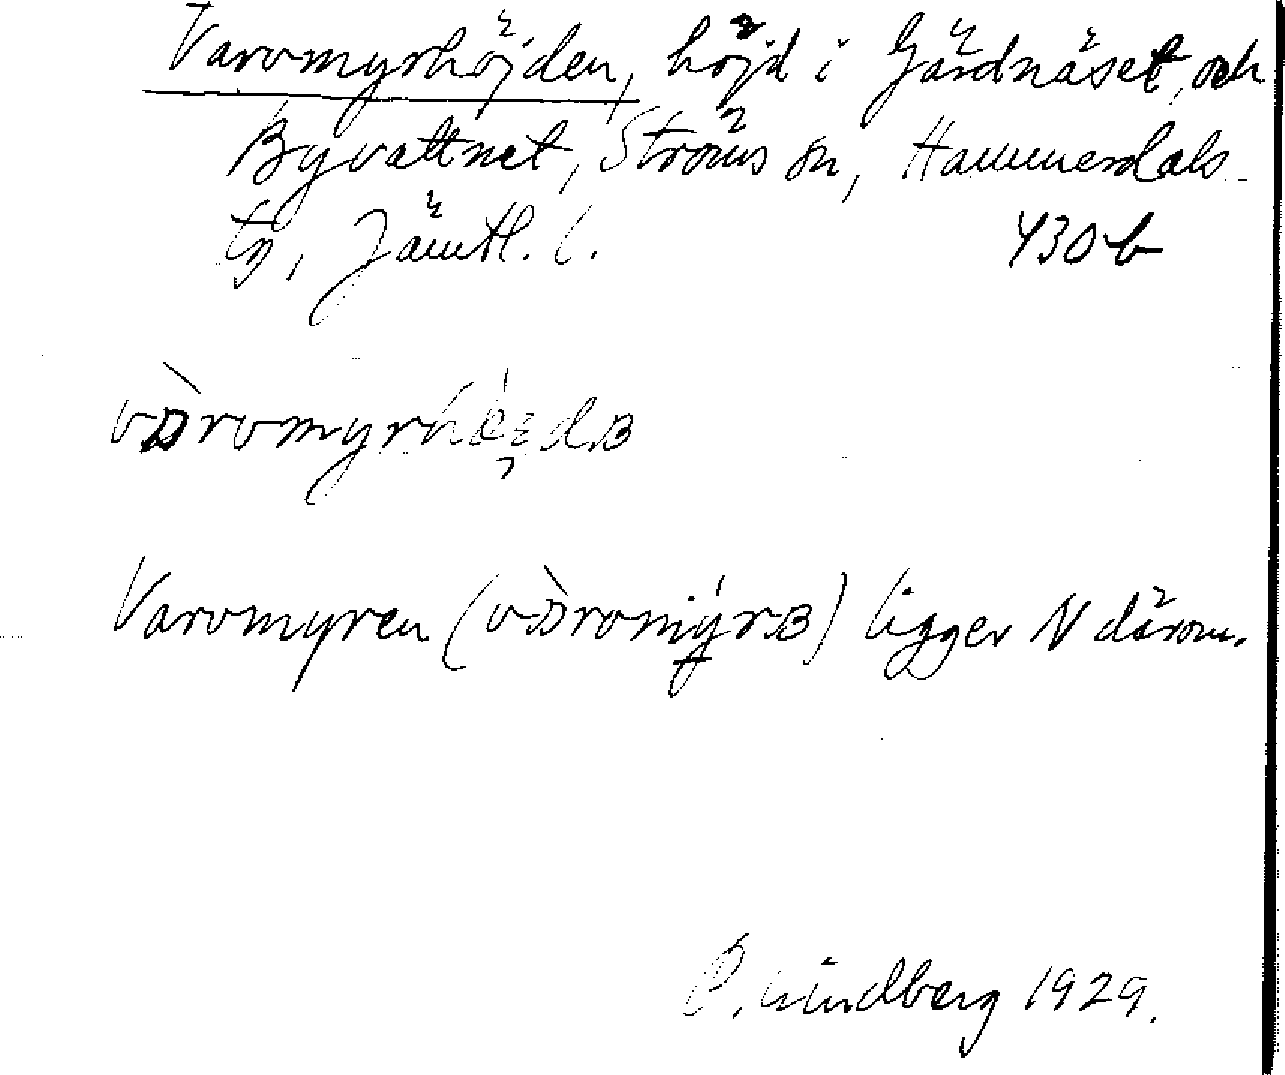 Varvmyrhöjden, höjd i Gärdnäset och
Byvattnet, Ströms sn, Hammerdals
tg, Jämtl. l.
430 b
Varvmyren ( ) ligger N därom.
Lindberg 1929.